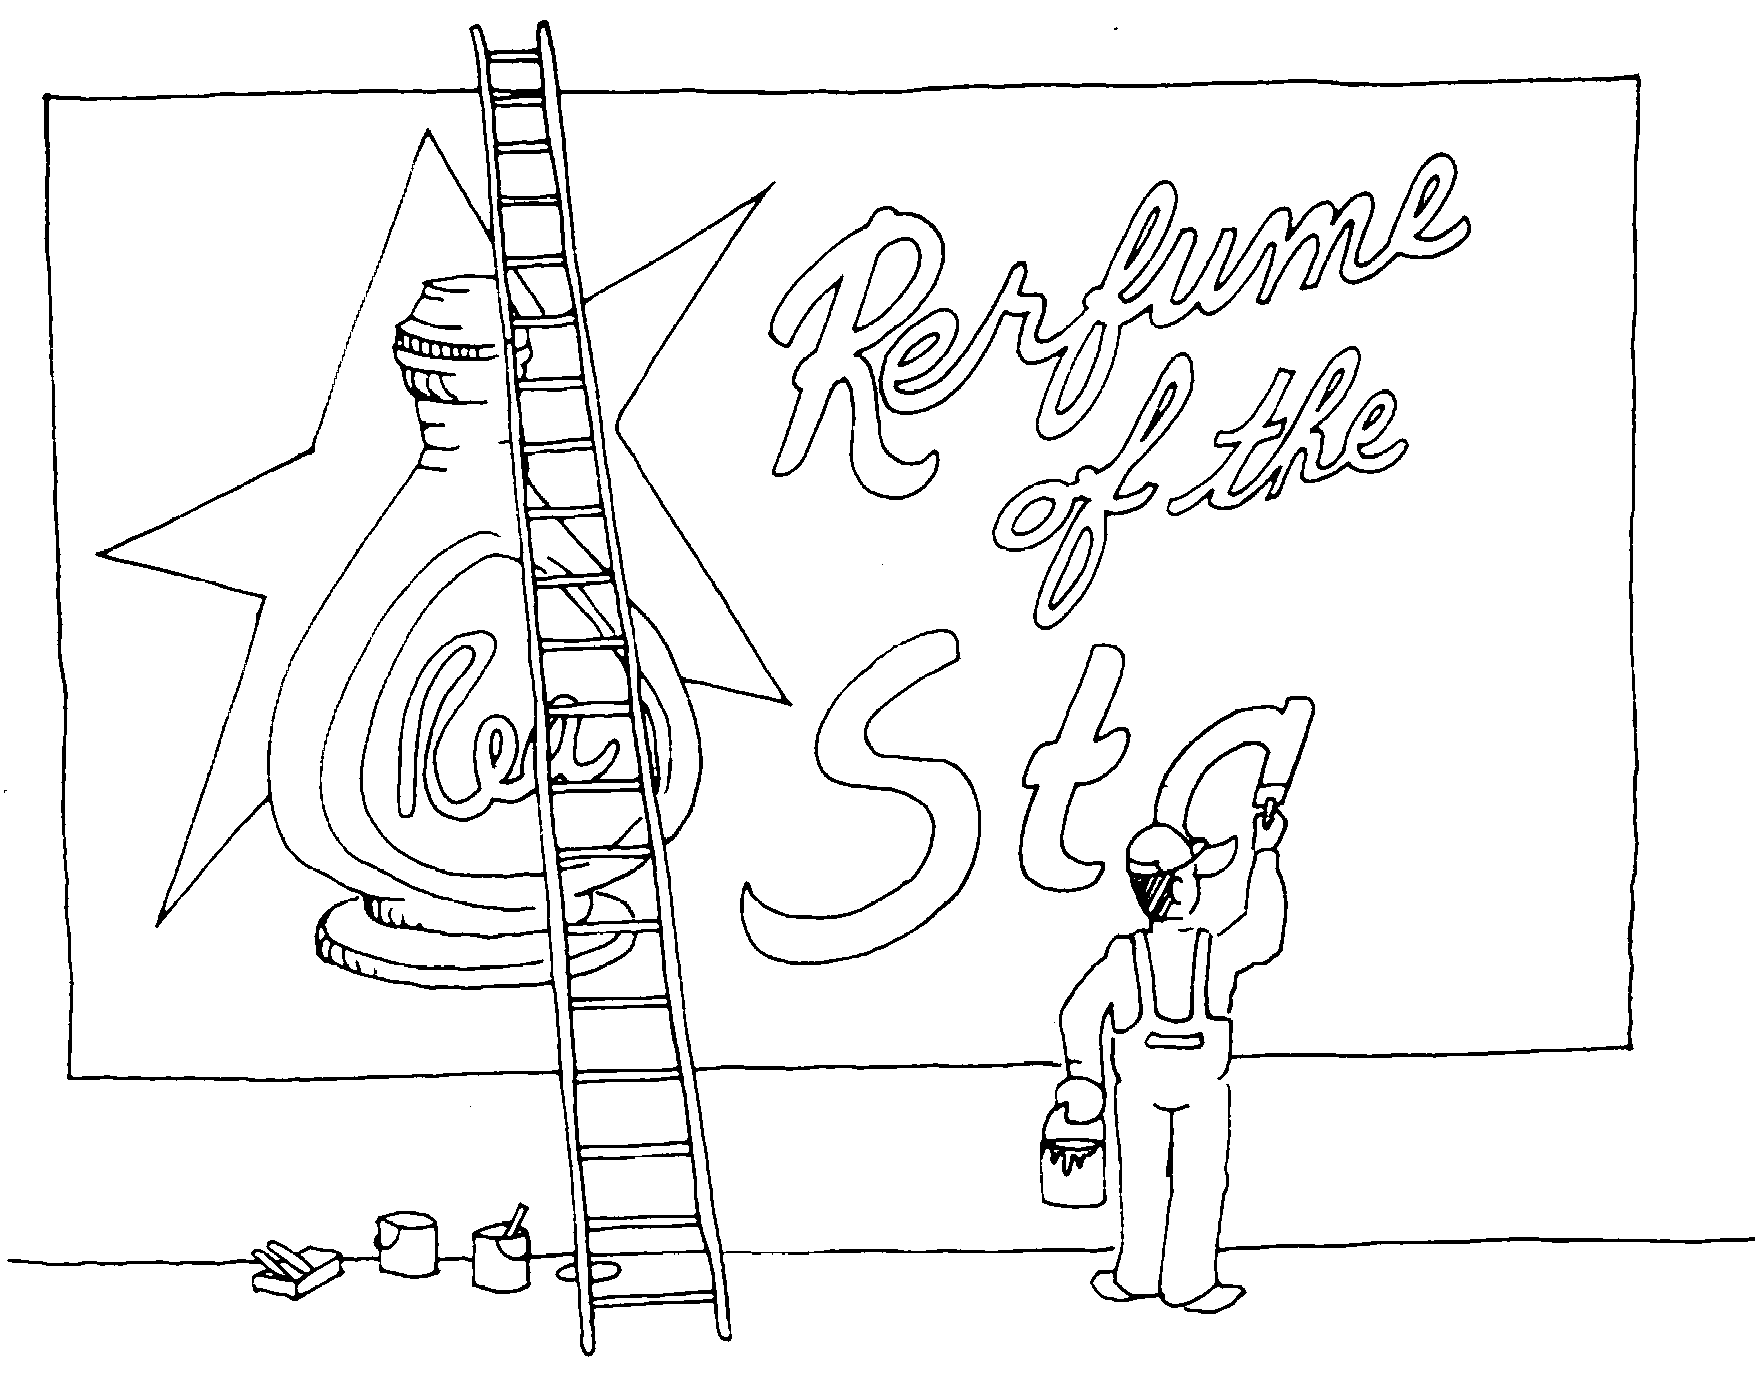 Perfume
of the
Sta